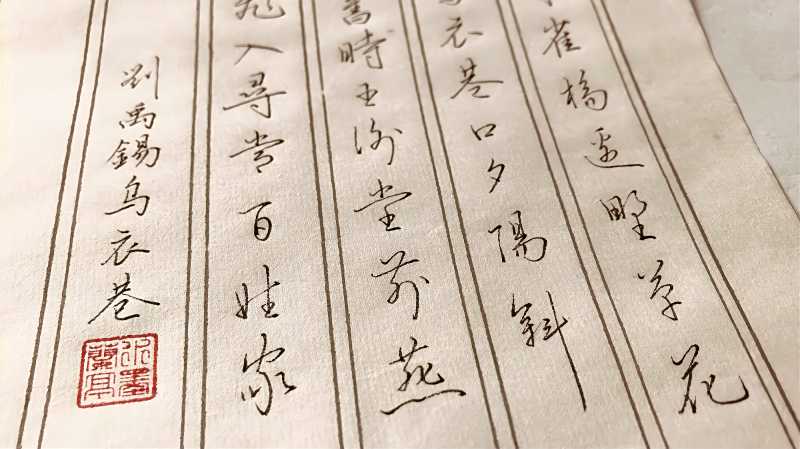 雀橋邊野草花
衣巷口夕陽斜
舊時王謝堂前燕
飛入尋常百姓家
劉禹錫烏衣巷
水墨蘭亭